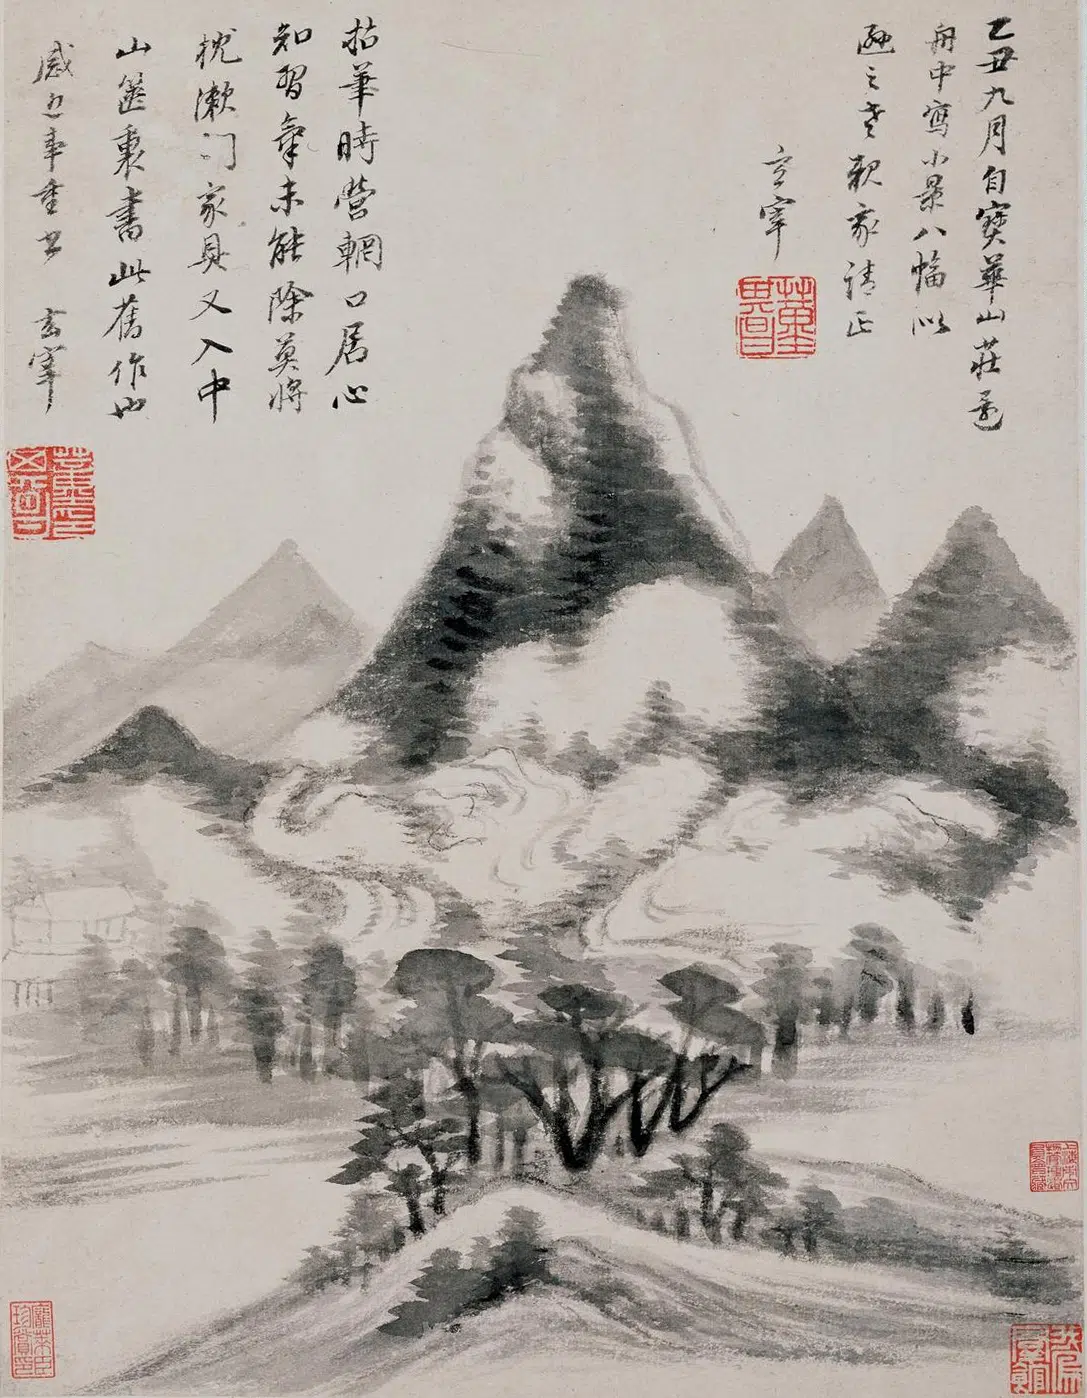 乙丑九月自寶華山莊還
舟中寫小景八幅似
遜之老親家請正
玄宰
董其昌
拈筆時營輞口居心
知習氣未能除莫將
枕漱閒家具又入中
山篋裏書此舊作也
感近事重書 玄宰
龐萊臣珍賞印